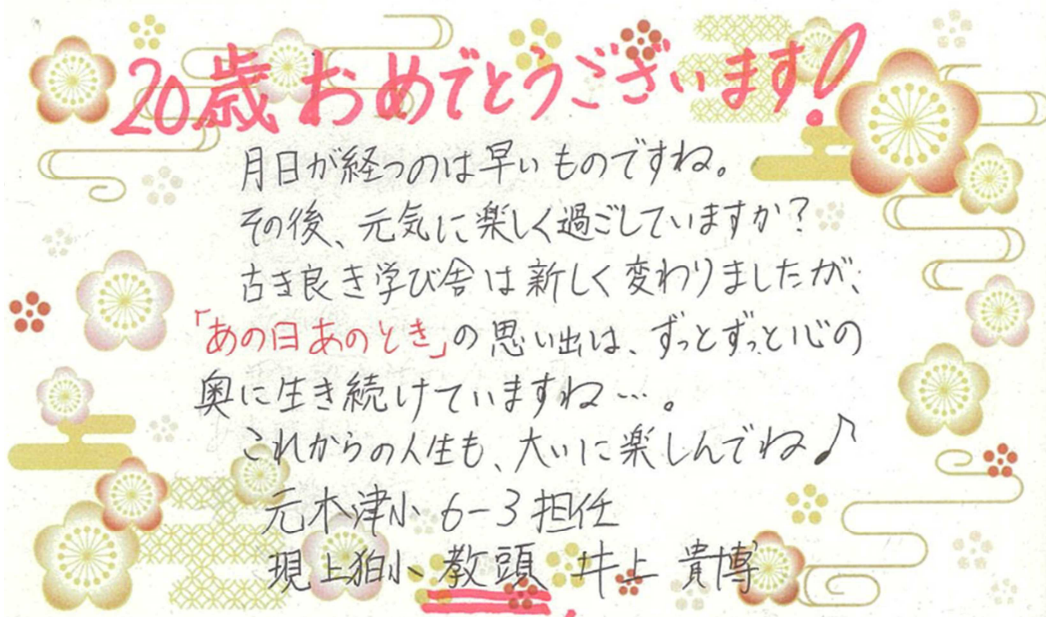 20歳おめでとうございます!
月日が経つのは早いものですね。
その後、元気に楽しく過ごしていますか?
古き良き学び舎は新しく変わりましたが、
「あの日あのとき」の思い出は、ずっとずっと心の
奥に生き続けていますね…。
これからの人生も、大いに楽しんでね♪
元木津小 6-3担任
現上狛小 教頭 井上 貴博